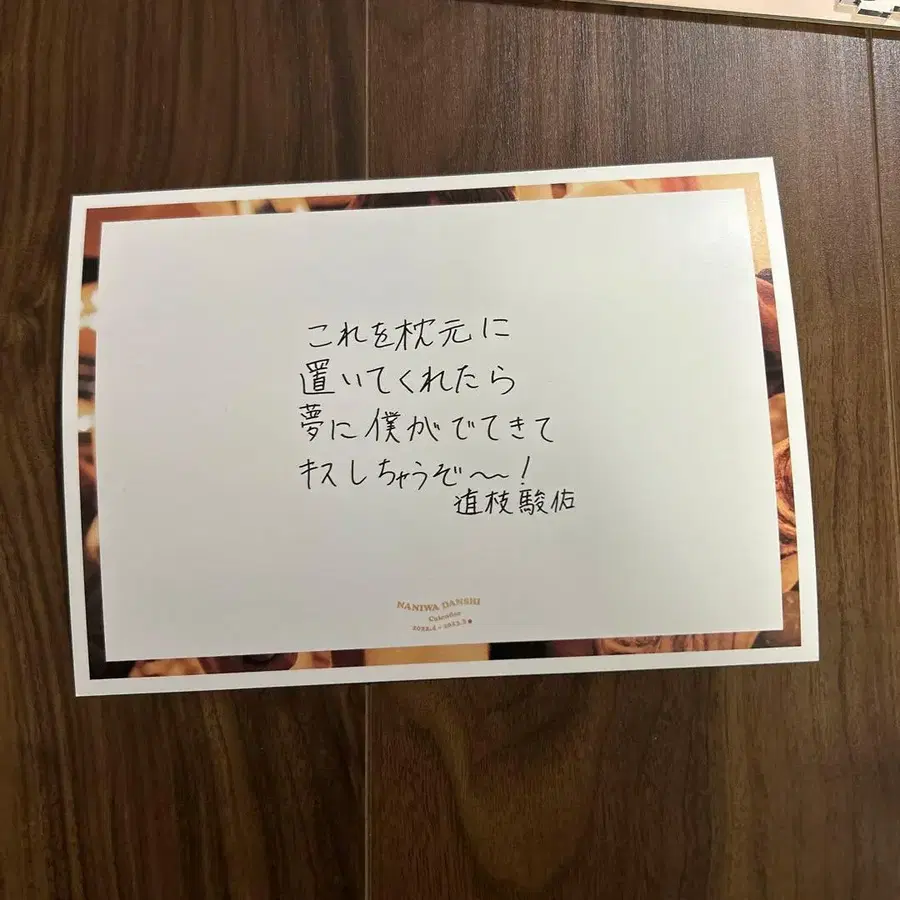 これを枕元に
置いてくれたら
夢に僕がでてきて
キスしちゃうぞ〜!
道枝駿佑
NANIWA DANSHI
Calendar
2022.4 - 2023.3